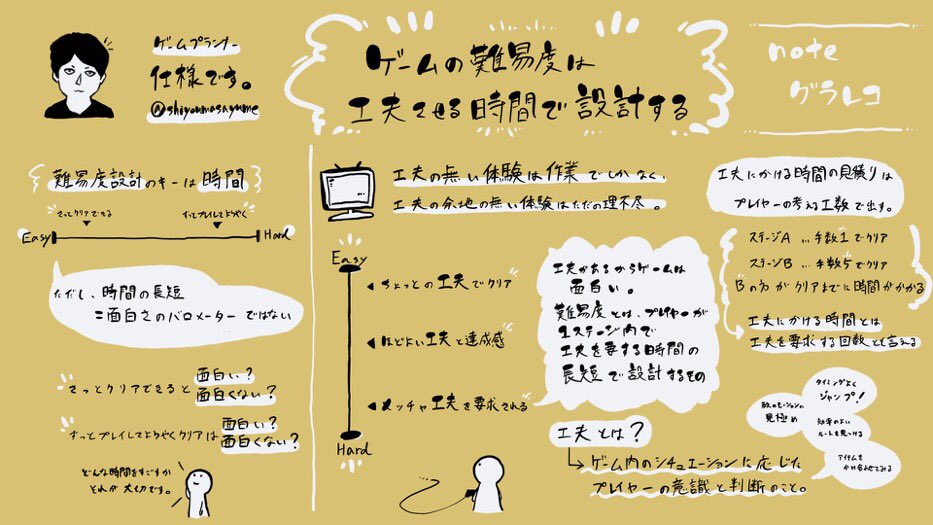 ゲームプランナー
仕様です。
@shiyoumasayume
ゲームの難易度は
工夫させる時間で設計する
note
グラレコ
難易度設計のキーは時間
さっとクリアできる
ずっとプレイしてようやく
Easy
Hard
ただし、時間の長短
=面白さのバロメーターではない
さっとクリアできると
面白い?
面白くない?
ずっとプレイしてようやくクリアは
面白い?
面白くない?
どんな時間をすごすか
それが大切です。
工夫の無い体験は作業でしかなく、
工夫の余地の無い体験はただの理不尽。
Easy
ちょっとの工夫でクリア
ほどよい工夫と達成感
メッチャ工夫を要求される
Hard
工夫があるからゲームは
面白い。
難易度とは、プレイヤーが
1ステージ内で
工夫を要する時間の
長短で設計するもの
工夫とは?
ゲーム内のシチュエーションに応じた
プレイヤーの意識と判断のこと。
工夫にかける時間の見積りは
プレイヤーの考える工数で出す。
ステージA…手数1でクリア
ステージB…手数5でクリア
Bの方がクリアまでに時間がかかる
工夫にかける時間とは
工夫を要求する回数とも言える
タイミングよく
ジャンプ!
敵のモーションの
見極め
効率のよい
ルートを見つける
アイテムを
かけ合わせてみる